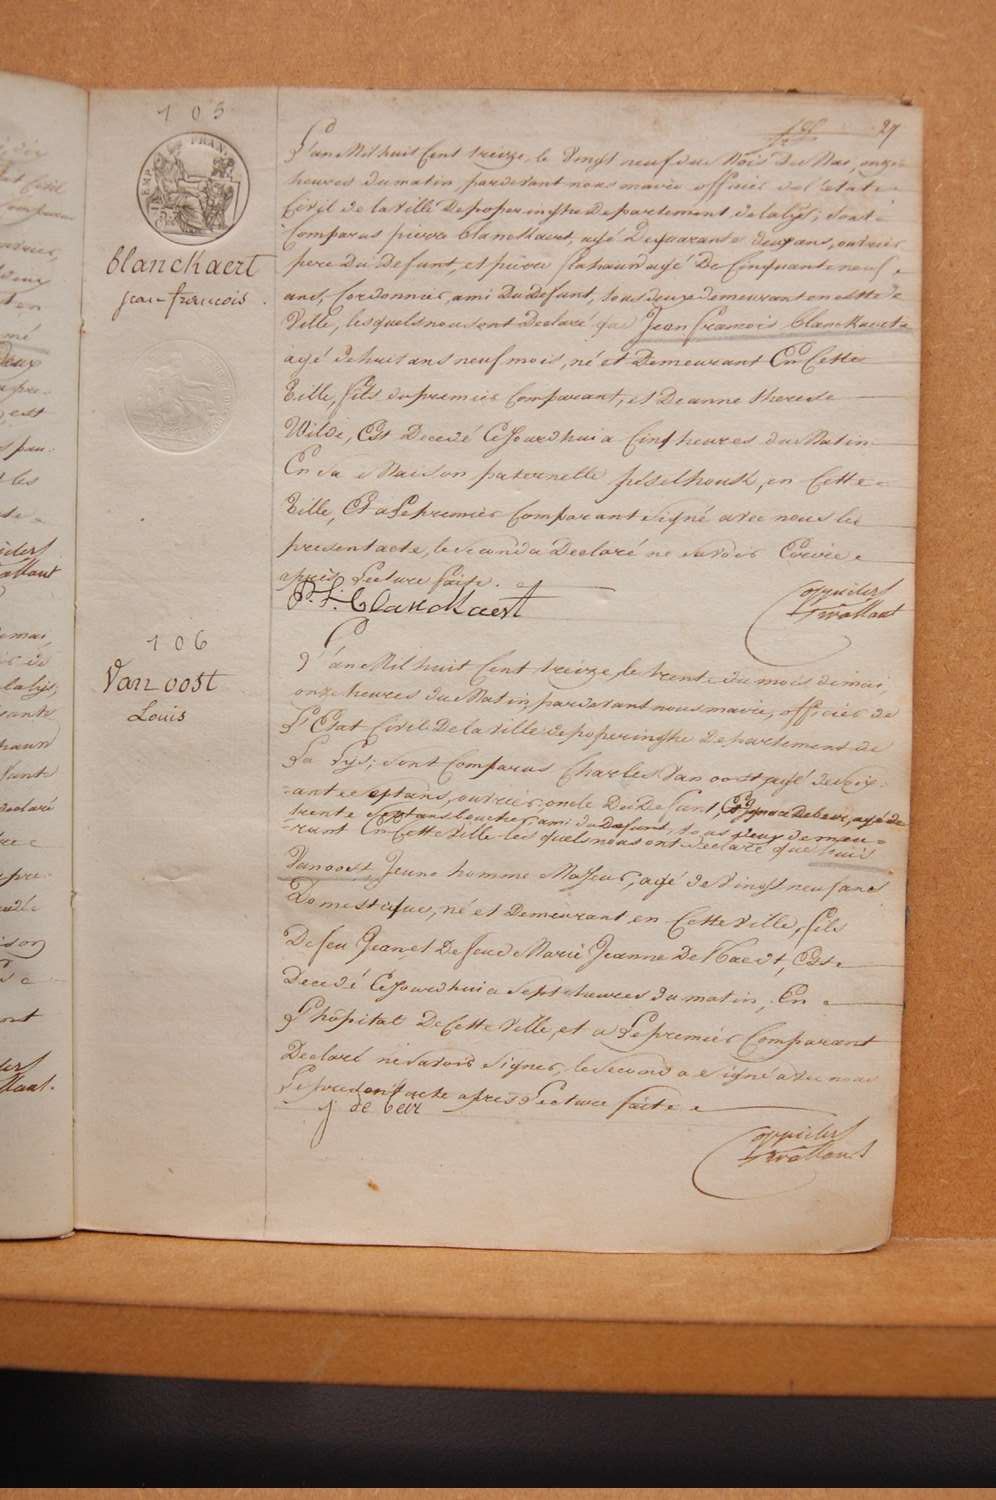 105
27
TIMB. FRAN.
blanckaert
jean francois
L'an Mil huit Cent treize, le Vingt neuf du Mois de Mai, onze
heures du matin pardevant nous maire officier de l'état
Civil de la ville de poperinghe Departement de la lys; sont
Comparus pierre blanckaert, agé De quarante deux ans, ouvrier
pere Du Defunt, et pierre flahaun agé De Cinquante neuf
ans, Cordonnier, ami Du Defunt, tous deux demeurant en cette
Ville, les quels nous ont Declaré que Jean francois blanckaert
agé de huit ans neuf mois, né et Demeurant En Cette
Ville, fils du premier Comparant, et De anne therese
Wilde, Est Decedé Ce Jourdhui a Cinq heures du Matin
En sa Maison paternelle peselhouk, en Cette
Ville, Et a le premier Comparant signé avec nous le
present acte, le second a Declaré ne savoir Ecrire
après Lecture faite.
P. J. blanckaert
106
Van oost
Louis
L'an Mil huit Cent treize, le trente du mois de mai,
onze heures du Matin, pardevant nous maire, officier de
L'Etat Civil De la Ville de poperinghe Departement de
La Lys; sont Comparus Charles Van oost, agé de soix-
ante sept ans, ouvrier, oncle Du Defunt, Et De beir, agé de
trente sept ans boucher, ami du Defunt, tous deux demeu-
-rant En Cette Ville les quels nous ont Declaré que Louis
Van oost, Jeune homme Majeur, agé de Vingt neuf ans
Domestique, né et Demeurant en Cette Ville, fils
De feu Jean, et De feue Marie Jeanne De Haedt, Est
Decedé Ce Jourdhui a sept heures du matin, En
L'hôpital De Cette Ville, et a Le premier Comparant
Declaré ne savoir signer, le second a signé avec nous
Le present acte après Lecture faite
J de beir